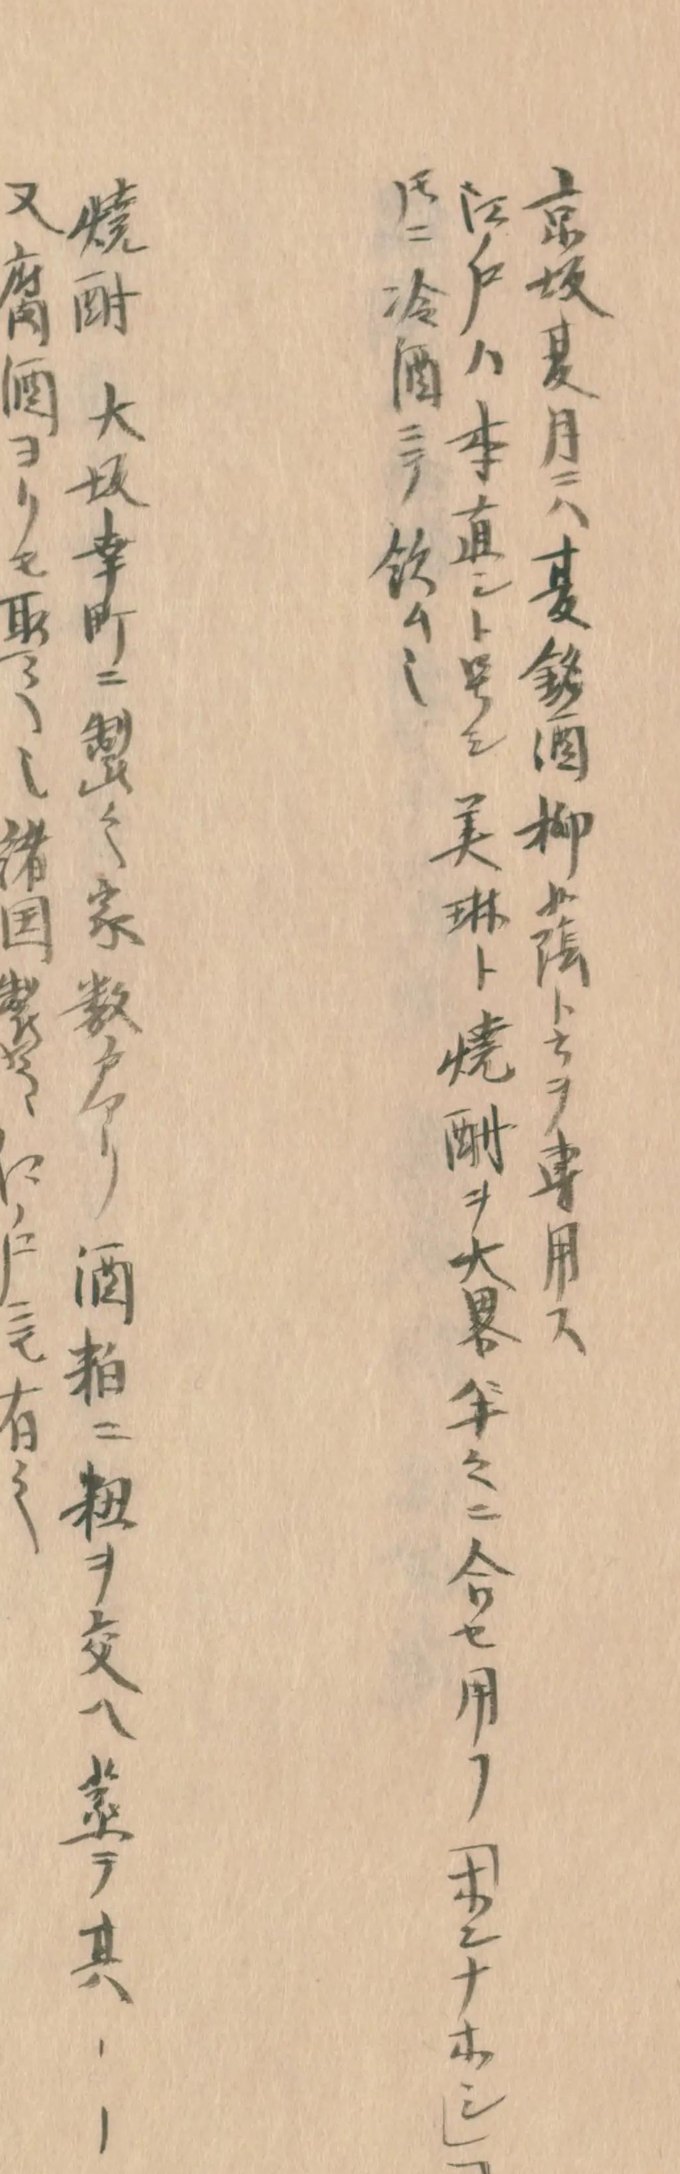 京坂夏月ニハ夏銘酒柳蔭ト云ヲ専用ス
江戸ハ本直シト号シ美琳ト焼酎ヲ大畧半々ニ合セ用フ「ホンナホシ」
トモニ冷酒ニテ飲ム也
焼酎 大坂幸町ニ製之家数戸アリ酒粕ニ粔ヲ交ヘ蒸テ其
又腐酒ヨリモ取之也諸国製 江戸ニモ有之